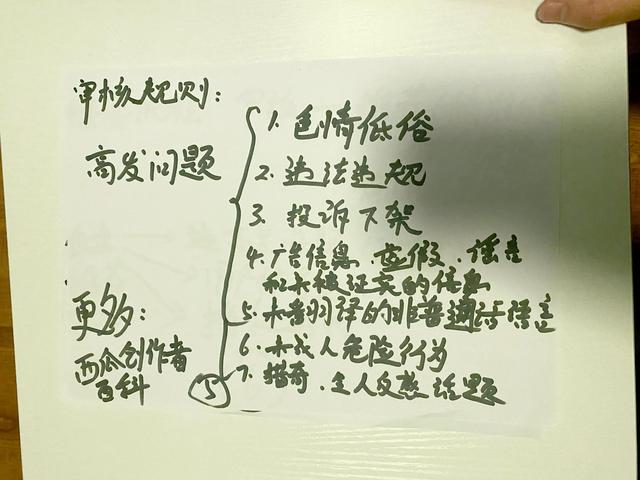 审核规则：
高发问题
1. 色情低俗
2. 违法违规
3. 投诉下架
4. 广告信息 虚假、谣言
和未被证实的信息
5. 未翻译的非普通话语言
6. 未成人危险行为
7. 猎奇、全人反感话题
更多：
西瓜创作者
百科
⑤